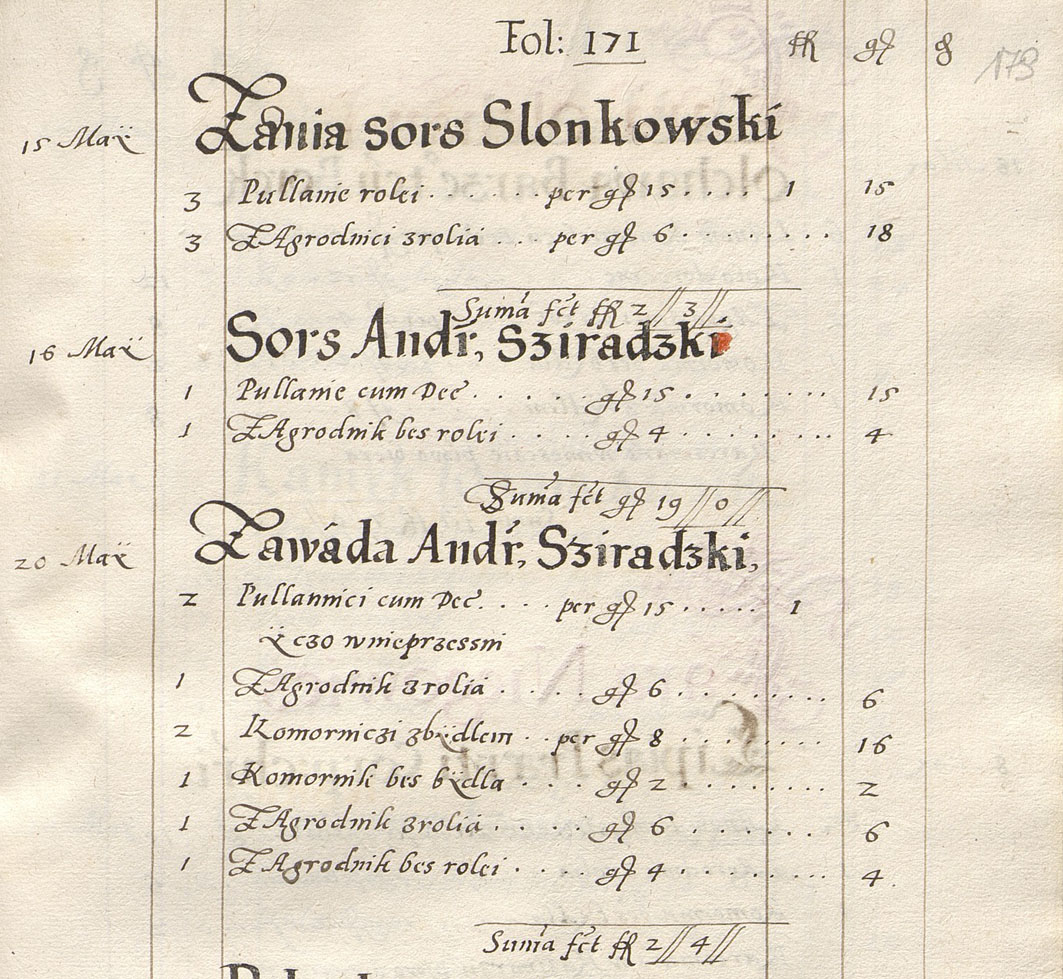 Fol: 171 fR gſ ϑ 173
15 Maÿ Zania sors Slonkowski
3 Pullanie rolei . . . . . . per gſ 15 . . . . 1 15
3 ZAgrodnici zrolia . . . per gſ 6 . . . . . . . . 18
Suma fct fR 2 // 3 //
16 Maÿ Sors Andr, Sziradzki
1 Pullanie cum Dec . . . . . gſ 15 . . . . . . . . 15
1 ZAgrodnik bes rolei . . . . gſ 4 . . . . . . . . 4
Suma fct gſ 19 // 0 //
20 Maÿ Zawáda Andr, Sziradzki,
2 Pullannici cum Dec. . . . per gſ 15 . . . . . 1
ÿ czo wnieprzessni
1 ZAgrodnik zrolia . . . . . gſ 6 . . . . . . . . 6
2 Komorniczi zbÿdlem . . per gſ 8 . . . . . . . . 16
1 Komornik bes bÿdla . . . . gſ 2 . . . . . . . . 2
1 ZAgrodnik zrolia . . . . . gſ 6 . . . . . . . . 6
1 ZAgrodnik bes rolei . . . . gſ 4 . . . . . . . . 4
Suma fct fR 2 // 4 //